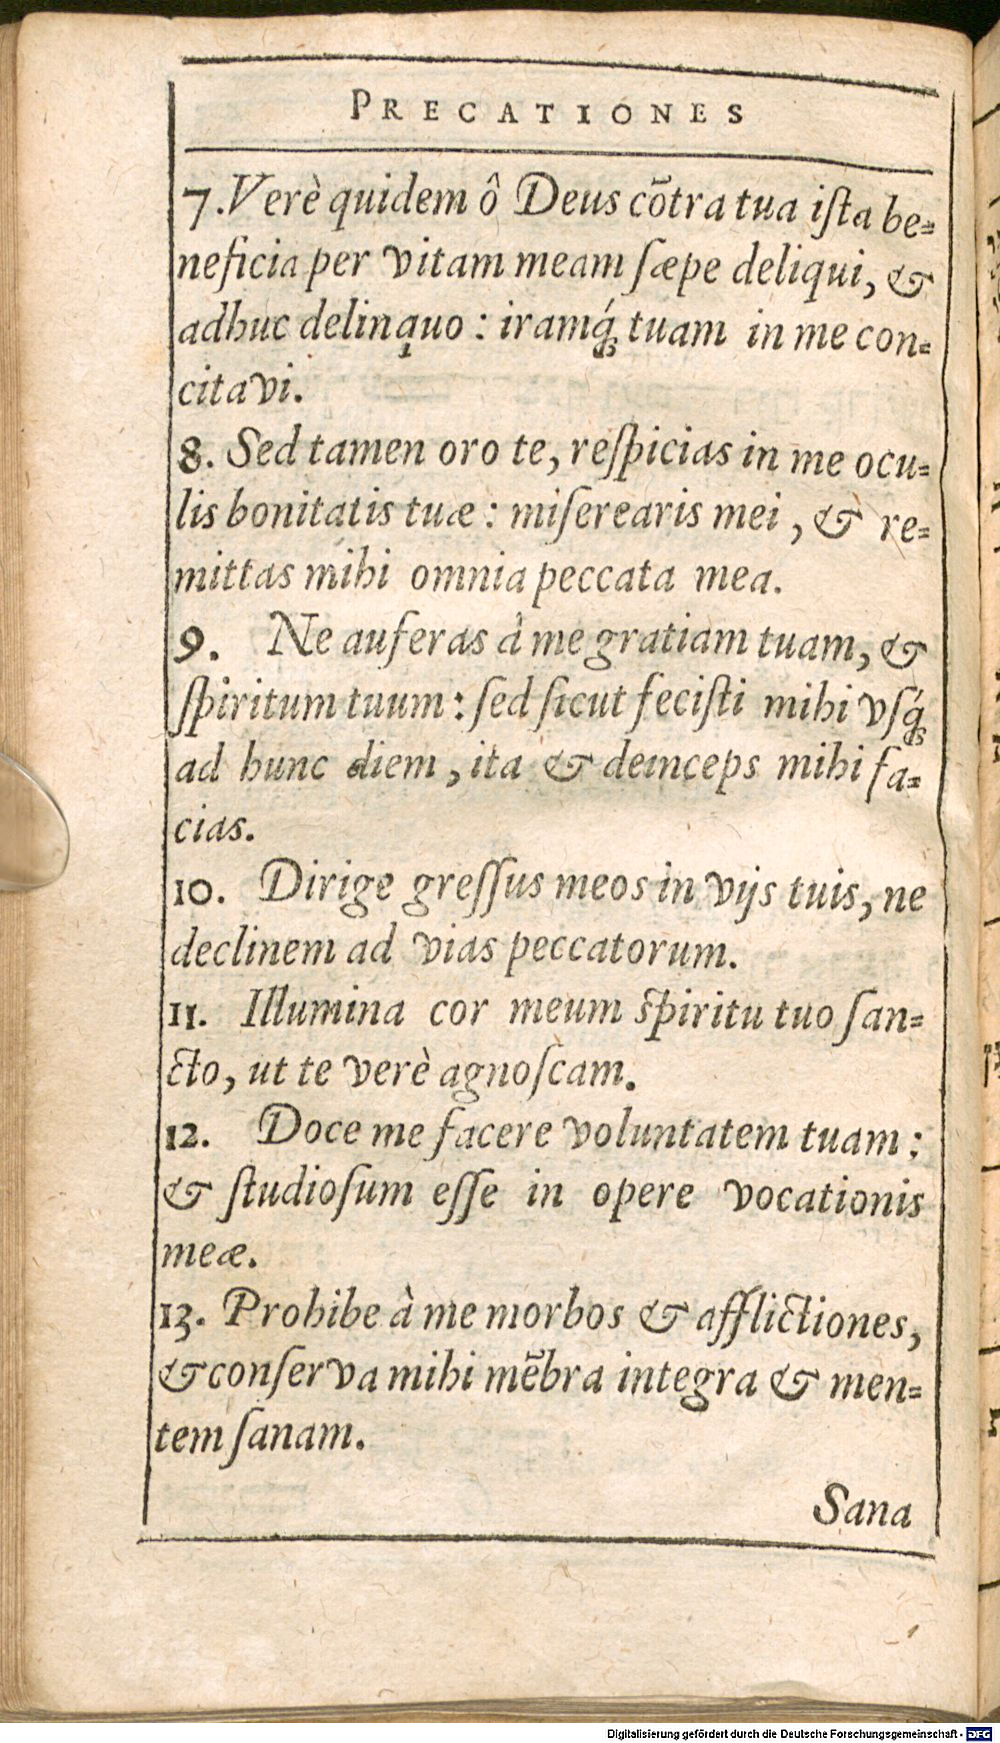 PRECATIONES
7. Verè quidem ô Deus cõtra tua iſta be-
neficia per vitam meam ſæpe deliqui, &
adhuc delinquo : iramq́; tuam in me con-
citavi.
8. Sed tamen oro te, reſpicias in me ocu-
lis bonitatis tuæ : miſerearis mei, & re-
mittas mihi omnia peccata mea.
9. Ne auferas â me gratiam tuam, &
ſpiritum tuum : ſed ſicut feciſti mihi vſq́;
ad hunc diem, ita & deinceps mihi fa-
cias.
10. Dirige greſſus meos in vijs tuis, ne
declinem ad vias peccatorum.
11. Illumina cor meum ſpiritu tuo ſan-
cto, ut te verè agnoſcam.
12. Doce me facere voluntatem tuam :
& ſtudioſum eſſe in opere vocationis
meæ.
13. Prohibe à me morbos & afflictiones,
& conſerva mihi mẽbra integra & men-
tem ſanam.
Sana
Digitalisierung gefördert durch die Deutsche Forschungsgemeinschaft - DFG